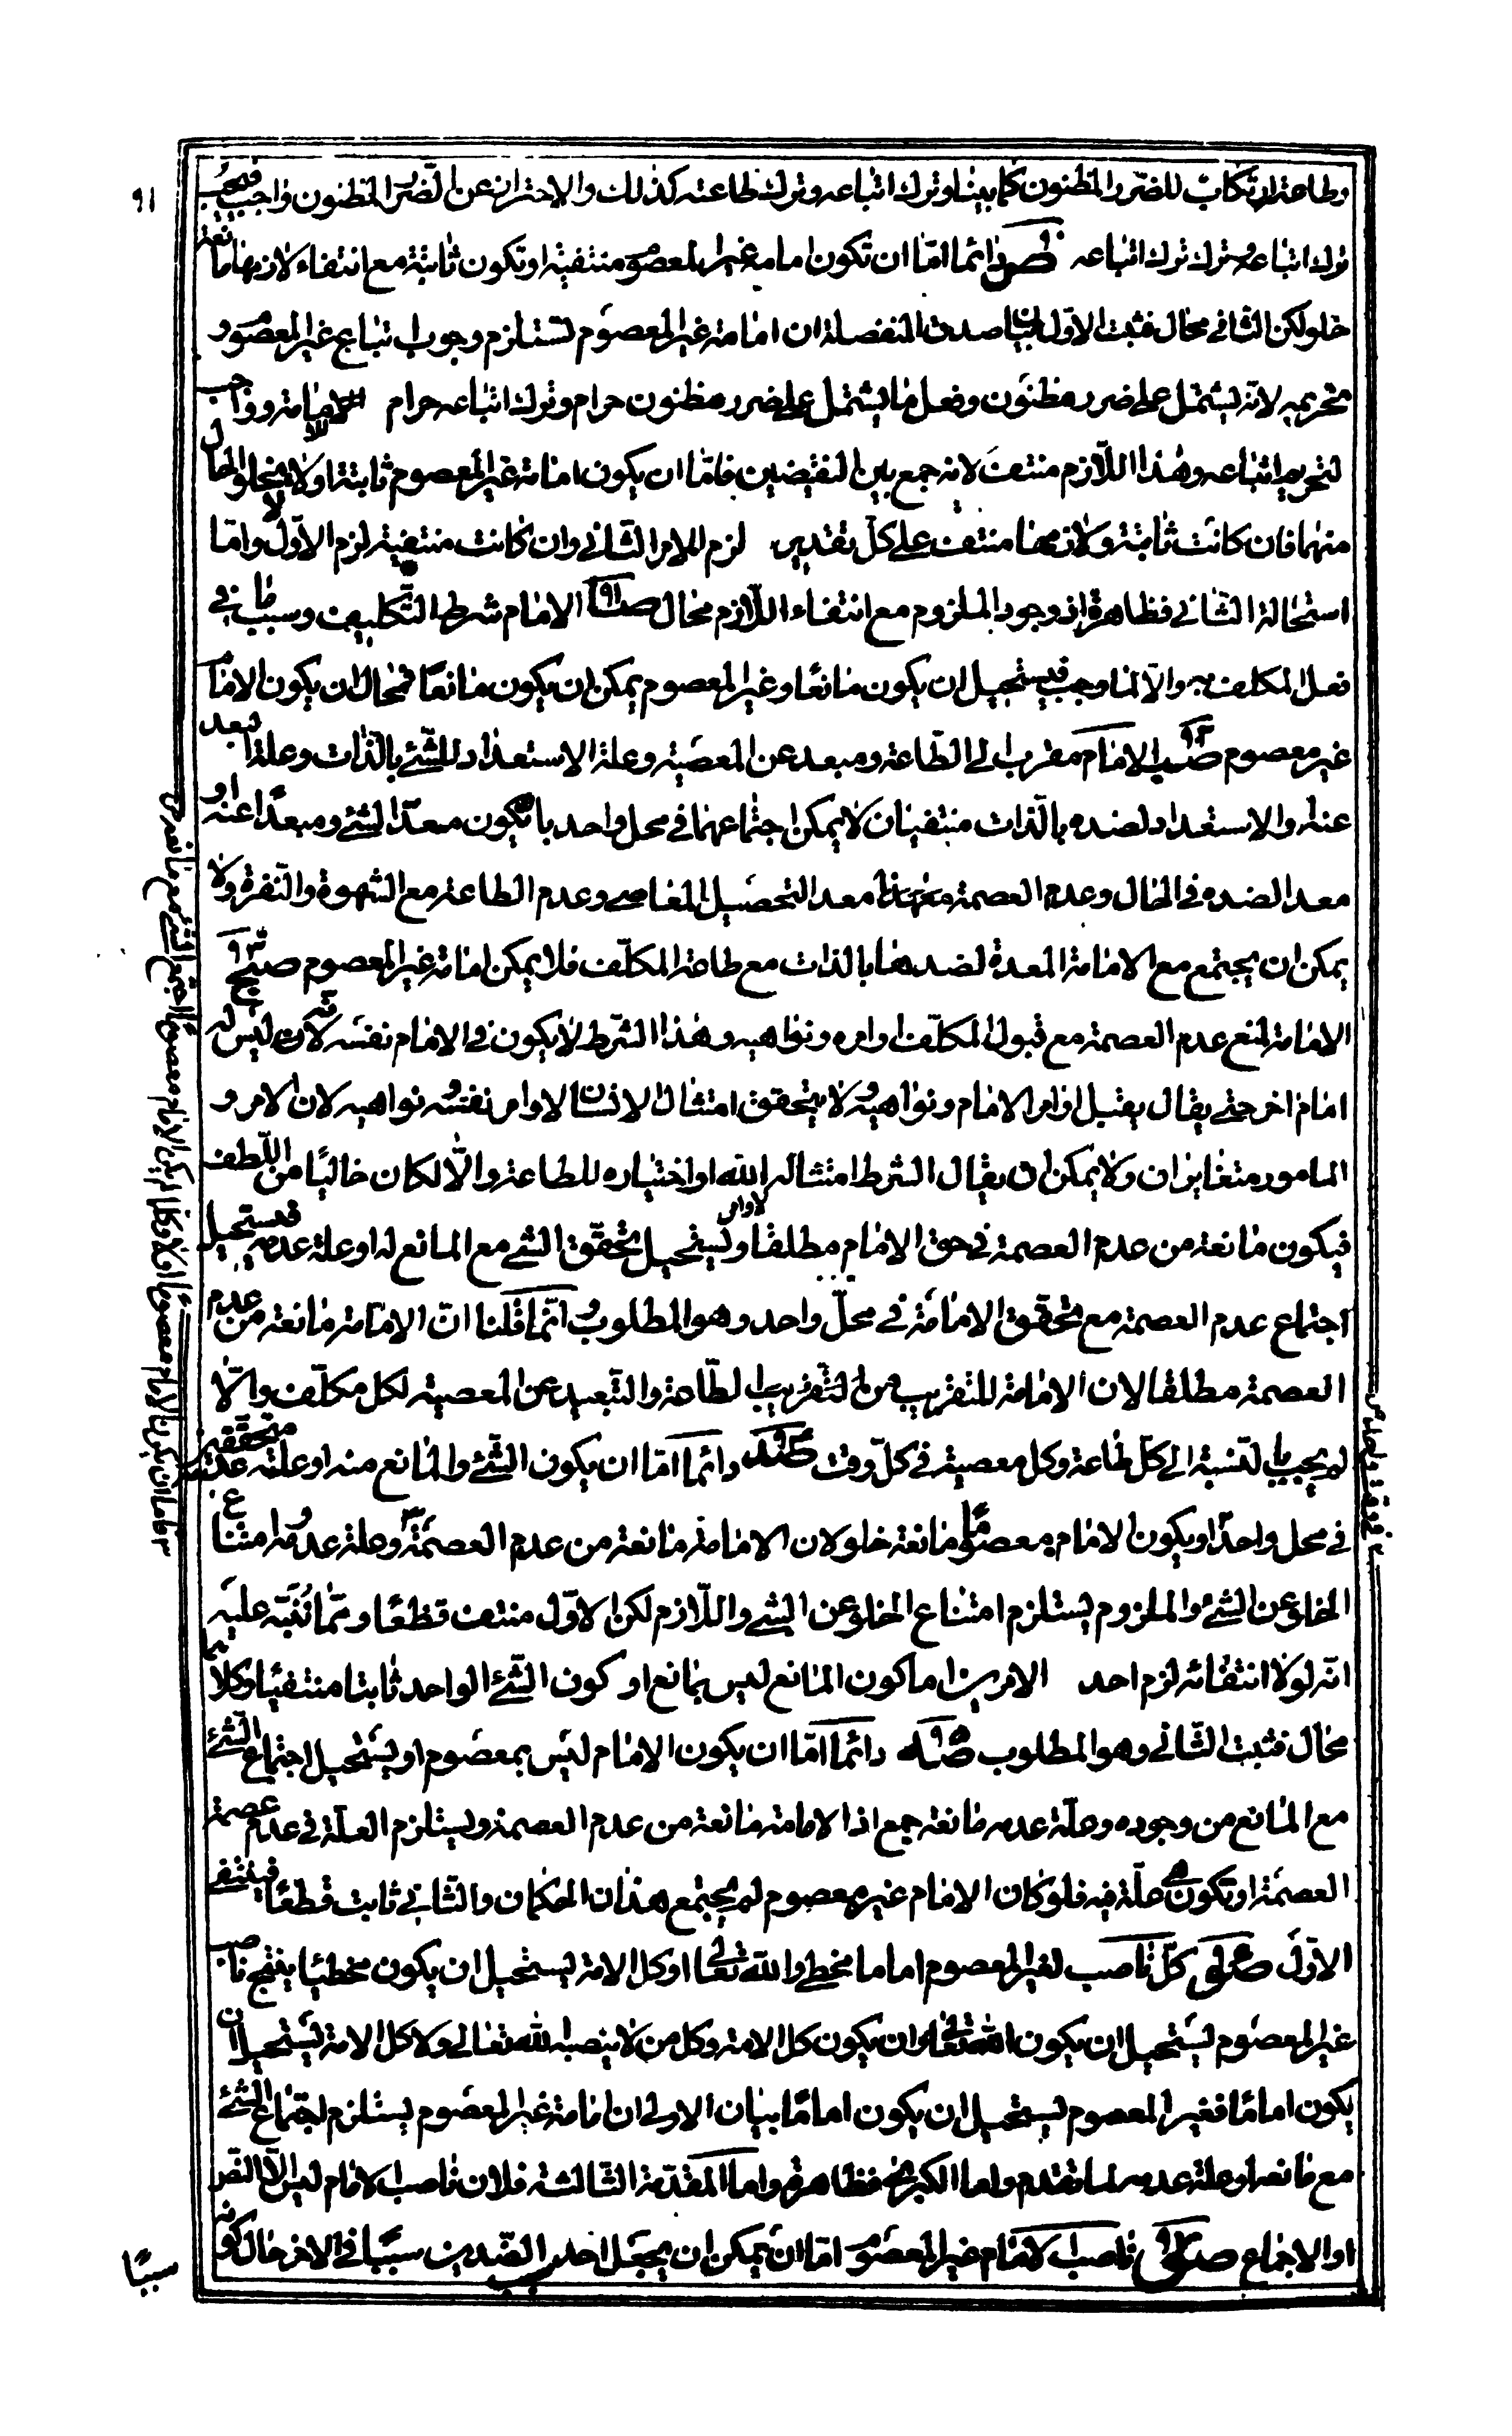 وطاعته ارتكاب للضرر المظنون كما بينا وترك اتباعه وترك طاعته كذلك والاحتراز عن الضرر المظنون واجب فيجب
ترك اتباعه وترك ترك اتباعه دائما اما ان تكون امامة غير المعصوم منتفية او تكون ثابتة مع انتفاء لازمها مانعة
خلو لكن الثاني محال فثبت الاول بيان صدق المنفصلة ان امامة غير المعصوم تستلزم وجوب اتباع غير المعصوم و
تحريمه لانه يشتمل على ضرر مظنون وفعل ما يشتمل على ضرر مظنون حرام وترك اتباعه حرام للامامة وواجب
لتحريم اتباعه وهذا اللازم منتف لانه جمع بين النقيضين فاما ان يكون امامة غير المعصوم ثابتة او لا يخلو الحال
منهما فان كانت ثابتة ولازمها منتف على كل تقدير لزم الامر الثاني وان كانت منتفية لزم الاول واما
استحالة الثاني فظاهرة اذ وجود الملزوم مع انتفاء اللازم محال صا ٩١ الامام شرط التكليف وسبب ما في
فعل المكلف به والا لما وجب فيستحيل ان يكون مانعا وغير المعصوم يمكن ان يكون مانعا فمحال ان يكون الامام
غير معصوم صب ٩٢ الامام مقرب الى الطاعة ومبعد عن المعصية وعلة الاستعداد للشئ بالذات وعلة البعد
عنه والاستعداد لضده بالذات منتفيان لا يمكن اجتماعهما في محل واحد بان يكون معدا لشئ ومبعدا عنه او
معدا لضده في الحال وعدم العصمة معد التحصيل المعاصي وعدم الطاعة مع الشهوة والنفرة ولا
يمكن ان يجتمع مع الامامة المعدة لضدها بالذات مع طاعة المكلف فلا يمكن امامة غير المعصوم صج ٩٣
الامامة تمنع عدم العصمة مع قبول المكلف اوامره ونواهيه وهذا الشرط لا يكون في الامام نفسه لانه ليس له
امام اخر حتى يقال يقبل اوامر الامام ونواهيه ولا يتحقق امتثال الانسان لاوامر نفسه ونواهيه لان الامر و
المامور متغايران ولا يمكن ان يقال الشرط امتثاله لاوامر الله او اختياره للطاعة والا لكان خاليا من اللطف
فيكون مانعة من عدم العصمة في حق الامام مطلقا ويستحيل تحقق الشئ مع المانع له او علة عدمه فيستحيل
اجتماع عدم العصمة مع تحقق الامامة في محل واحد وهو المطلوب وانما قلنا ان الامامة مانعة من عدم
العصمة مطلقا لان الامامة للتقريب من التقريب الطاعة والتبعيد عن المعصية لكل مكلف والا
لم يجب بالنسبة الى كل طاعة وكل معصية في كل وقت صد ٩٤ دائما اما ان يكون الشئ والمانع منه او علة عدمه متحققة
في محل واحد او يكون الامام معصوما مانعة خلو لان الامامة مانعة من عدم العصمة وعلة عدمه وامتناع
الخلو عن الشئ والملزوم يستلزم امتناع الخلو عن الشئ واللازم لكن الاول منتف قطعا ومما ننبه عليه
انه لولا انتفائه لزم احد الامرين اما كون المانع ليس بمانع او كون الشئ الواحد ثابتا منتفيا وكلاهما
محال فثبت الثاني وهو المطلوب صه ٩٥ دائما اما ان يكون الامام ليس بمعصوم او يستحيل اجتماع الشئ
مع المانع من وجوده وعلة عدمه مانعة جمع اذ الامامة مانعة من عدم العصمة ويستلزم العلة في عدم عصمة
العصمة او تكون هي علة فيه فلو كان الامام غير معصوم لم يجتمع هذان الحكمان والثاني ثابت قطعا فينتفي
الاول صو كل ناصب لغير المعصوم اماما مخطئ والله تعالى او كل الامة يستحيل ان يكون مخطئا ينتج ناصب
غير المعصوم يستحيل ان يكون الله تعالى وان يكون كل الامة وكل من لا ينصبه الله تعالى ولا كل الامة يستحيل ان
يكون اماما فغير المعصوم يستحيل ان يكون اماما بيان الاولى ان امامة غير المعصوم يستلزم اجتماع الشئ
مع مانعه او علة عدمه لما تقدم واما الكبرى فظاهرة واما المقدمة الثالثة فلان ناصب الامام ليس الا الله
او الاجماع صز ناصب الامام غير المعصوم اما ان يمكن ان يجعل احد الضدين سببا في الاخر حال كونه
سببا
٩١